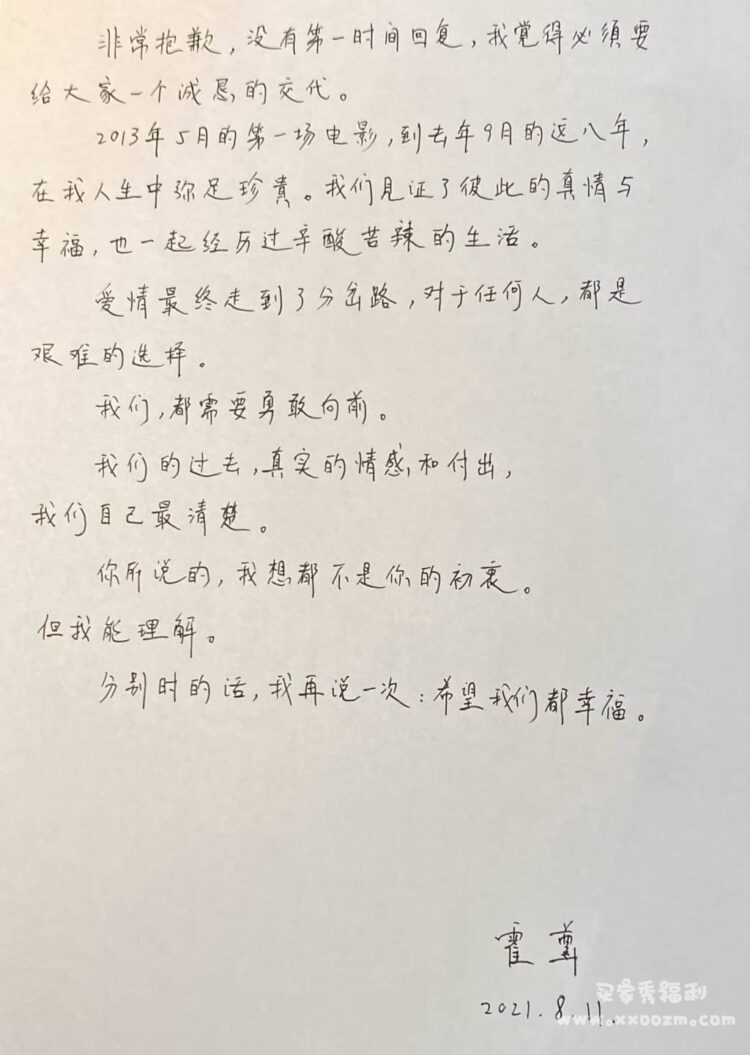 非常抱歉，没有第一时间回复，我覺得必须要
给大家一个诚恳的交代。
2013年5月的第一场电影，到去年9月的这八年，
在我人生中弥足珍貴。我们见证了彼此的真情与
幸福，也一起经历过辛酸苦辣的生活。
爱情最终走到了分岔路，对于任何人，都是
艰难的选择。
我们，都需要勇敢向前。
我们的过去，真实的情感和付出，
我们自己最清楚。
你所说的，我想都不是你的初衷。
但我能理解。
分别时的话，我再说一次：希望我们都幸福。
霍尊
2021.8.11.
买家秀福利
www.xxoozm.com